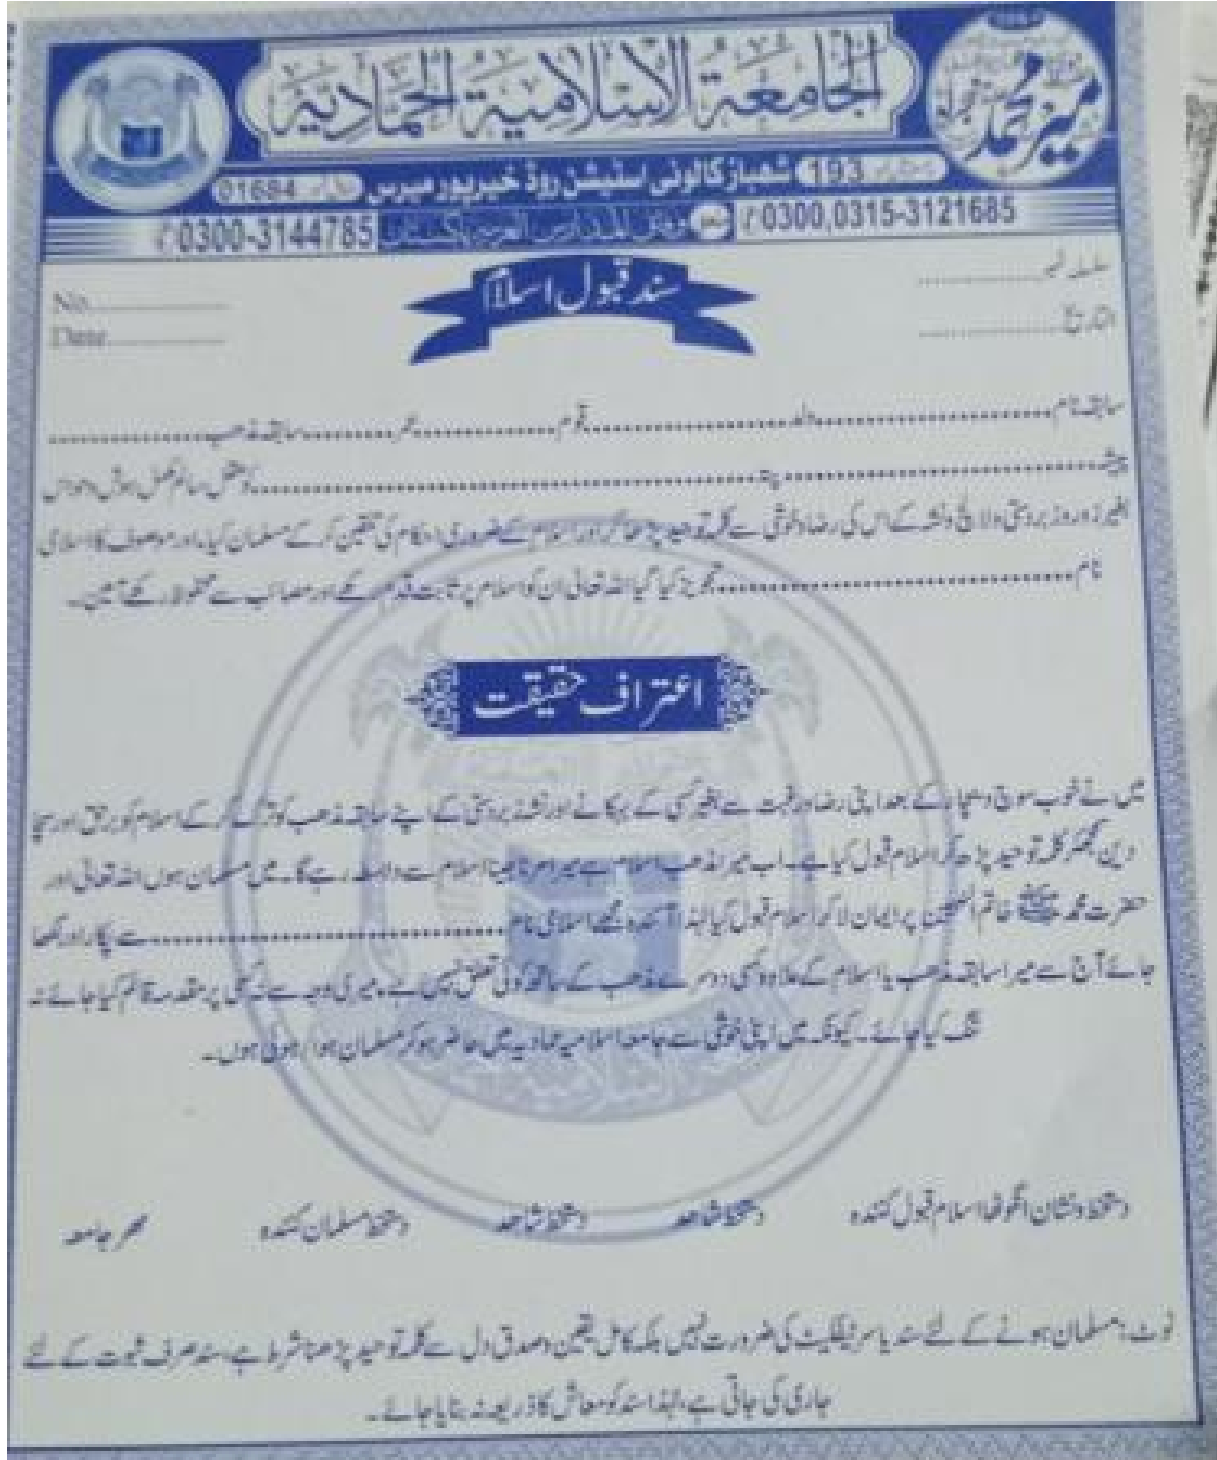 الجامعة الاسلامية الحمادية
میر محمد
193 شهباز کالونی اسٹیشن روڈ خیرپور میرس 01684
0300-3144785 وفاق المدارس العربیہ پاکستان 0300,0315-3121685
سند قبول اسلام
سلسلہ نمبر.................... No....................
التاریخ.................... Date....................
سابقہ نام....................ولد....................قوم....................عمر....................سابقہ مذھب....................
پیشہ....................پتہ....................کو بعقل سالم مکمل ہوش وحواس
بغیر زور وزبردستی ولالچ ونشہ کے اس کی رضا وخوشی سے کلمہ توحید پڑھا کر اور اسلام کے ضروری احکام کی تلقین کر کے مسلمان کیا۔ اور موصوف کا اسلامی
نام....................تجویز کیا گیا اللہ تعالیٰ ان کو اسلام پر ثابت قدم رکھے اور مصائب سے محفوظ رکھے آمین۔
اعتراف حقیقت
میں نے خوب سوچ وبچار کے بعد اپنی رضا ورغبت سے بغیر کسی کے بہکانے اور نشہ زبردستی کے اپنے سابقہ مذھب کو ترک کر کے اسلام کو برحق اور سچا
دین سمجھ کر کلمہ توحید پڑھ کر اسلام قبول کیا ہے۔ اب میرا مذھب اسلام ہے میرا مرنا جینا اسلام سے وابستہ رہے گا۔ میں مسلمان ہوں اللہ تعالیٰ اور
حضرت محمد ﷺ خاتم النبیین پر ایمان لا کر اسلام قبول کیا لہٰذا آئندہ مجھے اسلامی نام....................سے پکارا اور لکھا
جائے آج سے میرا سابقہ مذھب یا اسلام کے علاوہ کسی دوسرے مذھب کے ساتھ کوئی تعلق نہیں ہے۔ میری وجہ سے نہ کسی پر مقدمہ قائم کیا جائے نہ
تنگ کیا جائے۔ کیونکہ میں اپنی خوشی سے جامعہ اسلامیہ حمادیہ میں حاضر ہو کر مسلمان ہوا/ہوئی ہوں۔
دستخط ونشان انگوٹھا اسلام قبول کنندہ دستخط شاھد دستخط شاھد دستخط مسلمان کنندہ مھر جامعہ
نوٹ: مسلمان ہونے کے لئے سند یا سرٹیفکیٹ کی ضرورت نہیں بلکہ کامل یقین وصدق دل سے کلمہ توحید پڑھنا شرط ہے، سند صرف ثبوت کے لئے
جاری کی جاتی ہے، لہٰذا سند کو معاش کا ذریعہ نہ بنایا جائے۔